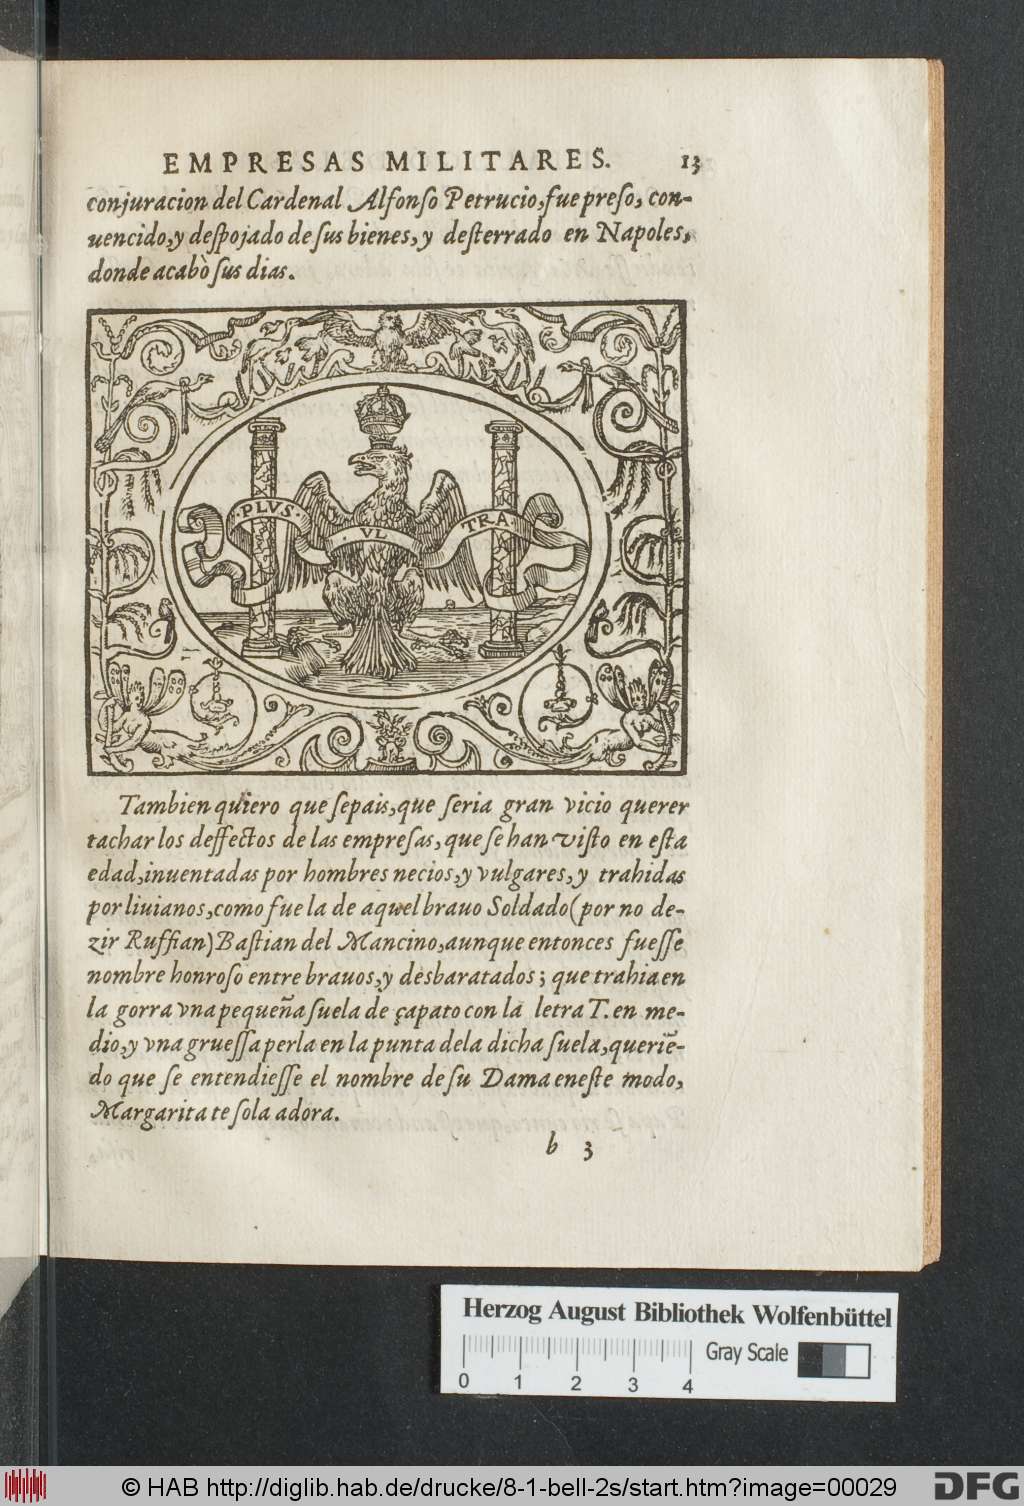 EMPRESAS MILITARES. 13
conjuracion del Cardenal Alfonso Petrucio, fue preso, con-
uencido, y despojado de sus bienes, y desterrado en Napoles,
donde acabò sus dias.
·PLVS· ·VL· TRA·
Tambien quiero que sepais, que seria gran vicio querer
tachar los deffectos de las empresas, que se han visto en esta
edad, inuentadas por hombres necios, y vulgares, y trahidas
por liuianos, como fue la de aquel brauo Soldado (por no de-
zir Ruffian) Bastian del Mancino, aunque entonces fuesse
nombre honroso entre brauos, y desbaratados; que trahia en
la gorra vna pequeña suela de çapato con la letra T. en me-
dio, y vna gruessa perla en la punta dela dicha suela, queriē-
do que se entendiesse el nombre de su Dama eneste modo,
Margarita te sola adora.
b 3
Herzog August Bibliothek Wolfenbüttel
Gray Scale
0 1 2 3 4
© HAB http://diglib.hab.de/drucke/8-1-bell-2s/start.htm?image=00029
DFG